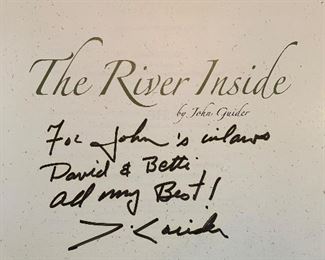 The River Inside
by John Guider
For John's inlaws
David & Betti
All my Best!
J Guider